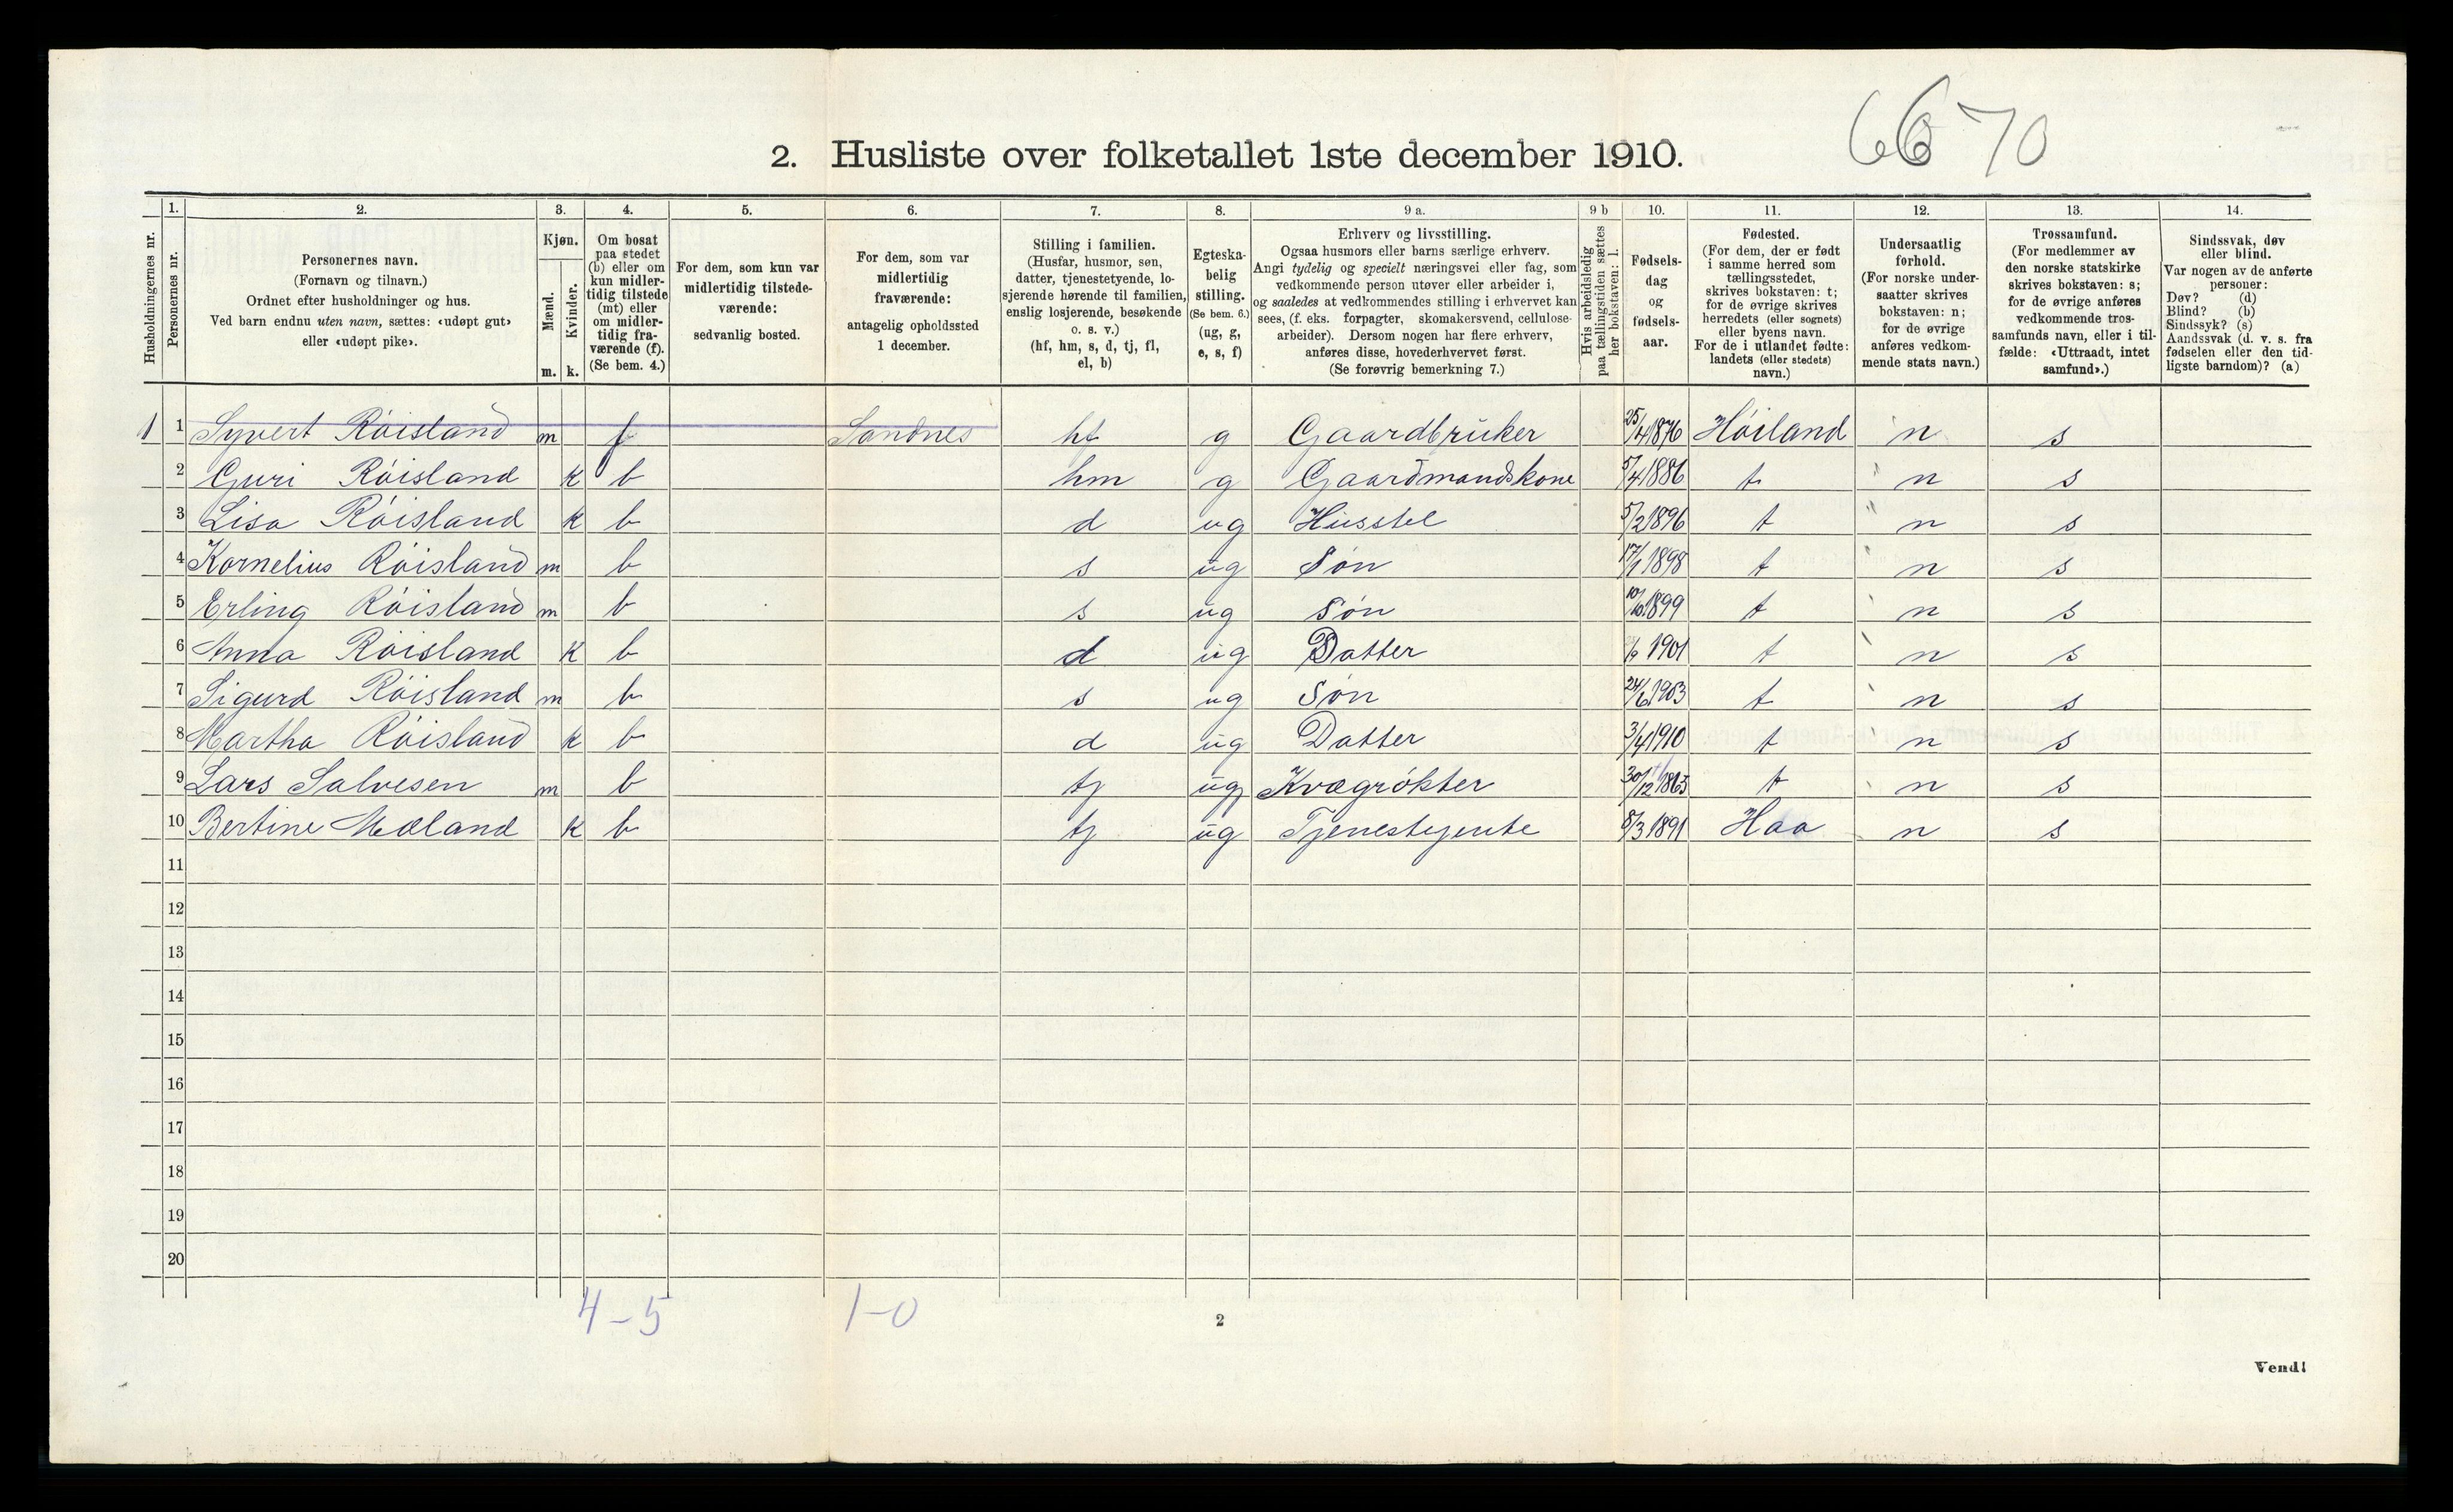 6670
2. Husliste over folketallet 1ste december 1910.
Husholdningernes nr.
1.
Personernes nr.
2.
Personernes navn.
(Fornavn og tilnavn.)
Ordnet efter husholdninger og hus.
Ved barn endnu uten navn, sættes: «udøpt gut»
eller «udøpt pike».
3.
Kjøn.
Mænd.
Kvinder.
m. k.
4.
Om bosat
paa stedet
(b) eller om
kun midler-
tidig tilstede
(mt) eller
om midler-
tidig fra-
værende (f).
(Se bem. 4.)
5.
For dem, som kun var
midlertidig tilstede-
værende:
sedvanlig bosted.
6.
For dem, som var
midlertidig
fraværende:
antagelig opholdssted
1 december.
7.
Stilling i familien.
(Husfar, husmor, søn,
datter, tjenestetyende, lo-
sjerende hørende til familien,
enslig losjerende, besøkende
o. s. v.)
(hf, hm, s, d, tj, fl,
el, b)
8.
Egteska-
belig
stilling.
(Se bem. 6.)
(ug, g,
e, s, f)
9 a.
Erhverv og livsstilling.
Ogsaa husmors eller barns særlige erhverv.
Angi tydelig og specielt næringsvei eller fag, som
vedkommende person utøver eller arbeider i,
og saaledes at vedkommendes stilling i erhvervet kan
sees, (f. eks. forpagter, skomakersvend, cellulose-
arbeider). Dersom nogen har flere erhverv,
anføres disse, hovederhvervet først.
(Se forøvrig bemerkning 7.)
9 b
Hvis arbeidsledig
paa tællingstiden sættes
her bokstaven: l.
10.
Fødsels-
dag
og
fødsels-
aar.
11.
Fødested.
(For dem, der er født
i samme herred som
tællingsstedet,
skrives bokstaven: t;
for de øvrige skrives
herredets (eller sognets)
eller byens navn.
For de i utlandet fødte:
landets (eller stedets)
navn.)
12.
Undersaatlig
forhold.
(For norske under-
saatter skrives
bokstaven: n;
for de øvrige
anføres vedkom-
mende stats navn.)
13.
Trossamfund.
(For medlemmer av
den norske statskirke
skrives bokstaven: s;
for de øvrige anføres
vedkommende tros-
samfunds navn, eller i til-
fælde: «Uttraadt, intet
samfund».)
14.
Sindssvak, døv
eller blind.
Var nogen av de anførte
personer:
Døv? (d)
Blind? (b)
Sindssyk? (s)
Aandssvak (d. v. s. fra
fødselen eller den tid-
ligste barndom)? (a)
1 1 Syvert Röisland m f Sandnes hf g Gaardbruker 25/4 1876 Höiland n s
2 Guri Röisland k b hm g Gaardmandskone 5/4 1886 t n s
3 Lisa Röisland k b d ug Husstel 5/2 1896 t n s
4 Kornelius Röisland m b s ug Søn 17/1 1898 t n s
5 Erling Röisland m b s ug Søn 10/10 1899 t n s
6 Anna Röisland k b d ug Datter 1901 t n s
7 Sigurd Röisland m b s ug Søn 24/6 1903 t n s
8 Martha Röisland k b d ug Datter 3/4 1910 t n s
9 Lars Salvesen m b tj ug Kvægrökter 30/12 1865 t n s
10 Bertine Mæland k b tj ug Tjenestejente 8/3 1891 Haa n s
11
12
13
14
15
16
17
18
19
20
4-5 1-0
2
Vend!